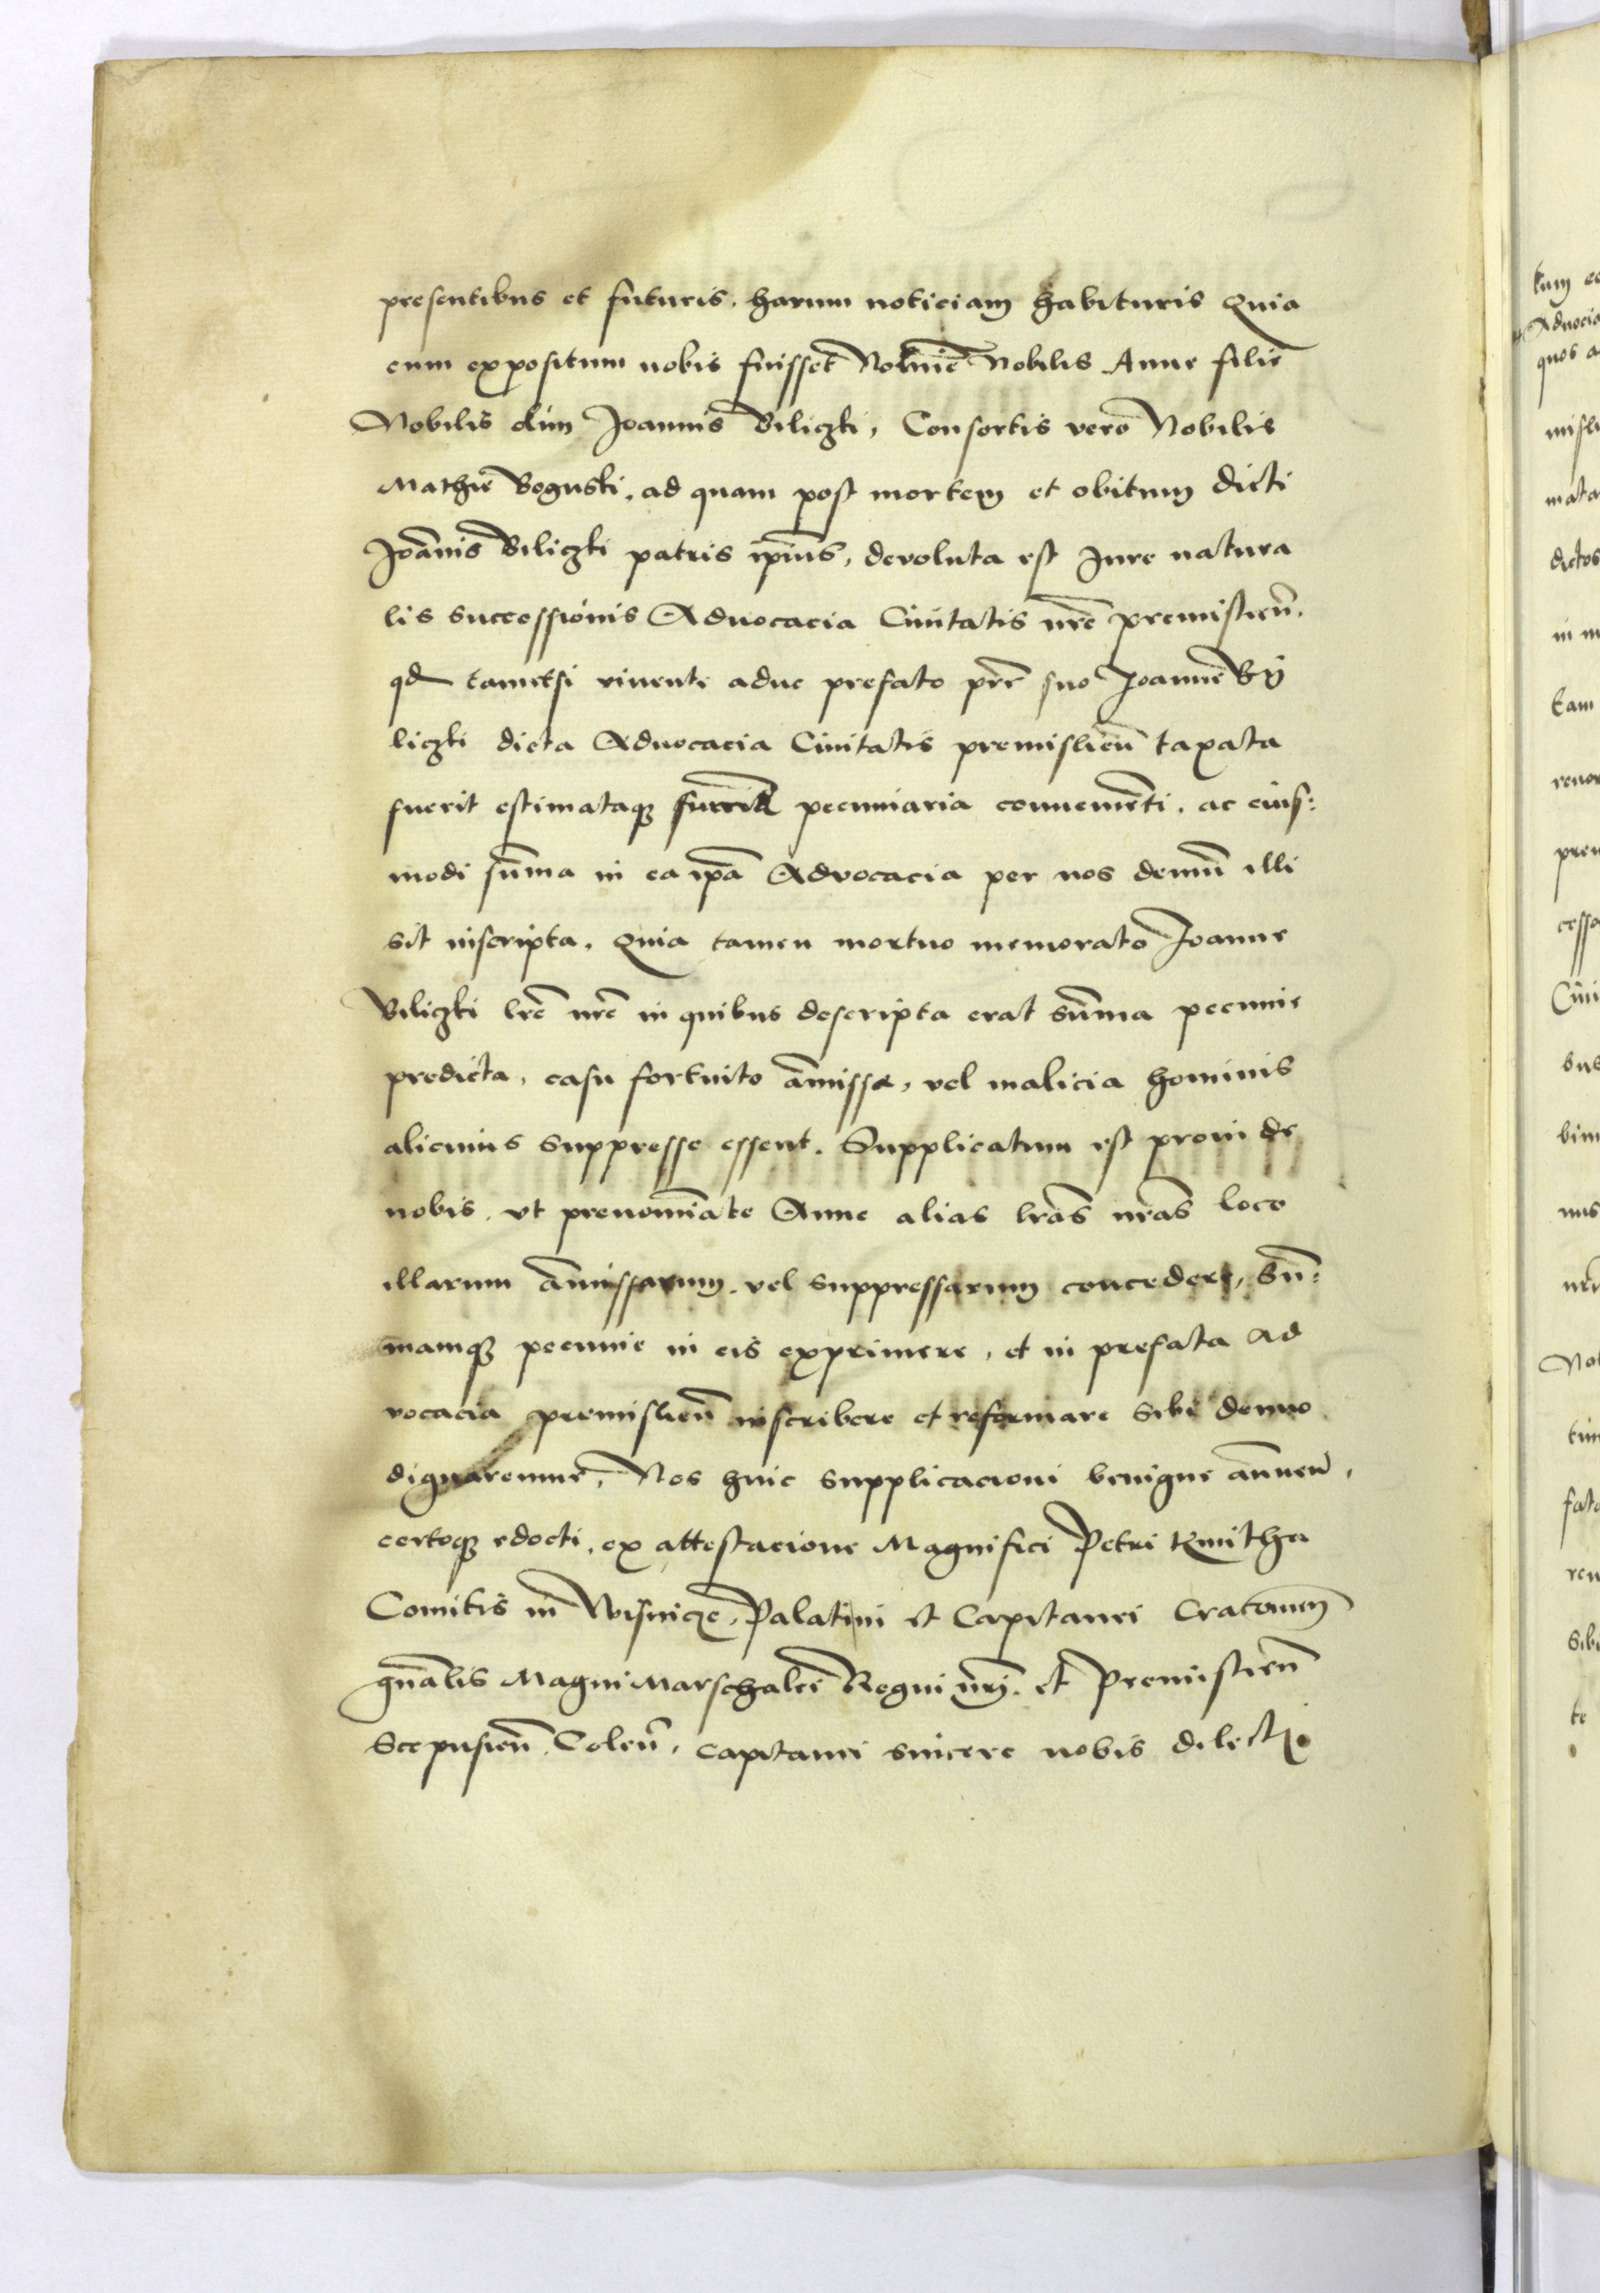 presentibus et futuris. harum noticiam habituris Quia
cum expositum nobis fuisset Noīe Nobilis Anne filie
Nobilis olim Joannis Biliczki, Consortis vero Nobilis
Mathie Boguski. ad quam post mortem et obitum dicti
Joānis Biliczki patris ipīus, devoluta est Jure natura
lis successionis Aduocacia Ciuitatis nrē premislieñ.
qd tametsi viuente aduc prefato prē suo Joanne By
liczki dicta Aduocacia Ciuitatis premislieñ taxata
fuerit estimataqȝ pecuniaria conuenienti. ac eius:
modi sūma in ea ipā Advocacia per nos demū illi
sit inscripta. Quia tamen mortuo memorato Joanne
Biliczki lrē nrē in quibus descripta erat sūma pecunie
predicta, casu fortuito āmisse, vel malicia hominis
alicuius suppresse essent. Supplicatum est proin de
nobis. vt prenomīate Anne alias lrās nrās loco
illarum āmissarum. vel suppressarum concedere, sū:
mamqȝ pecunie in eis exprimere, et in prefata Ad
vocacia premislieñ inscribere et reformare sibi denuo
dignaremur, Nos huic supplicacioni benigne ānueñ,
certoqȝ edocti. ex attestacione Magnifici Petri Kmitha
Comitis in Wisnicze, Palatini et Capitanei Cracouieñ
gnālis Magni Marschalci Regni nrj. et Premislieñ
Scepusieñ. Coleñ. capitanei sincere nobis dilecti.
tum
Aduocia
quos a
misli
mata
dictos
in
tam
renou
prem
cesso
Ciui
bus
bim
nus
nrē
Nob
tim
fata
ren
sibi
te